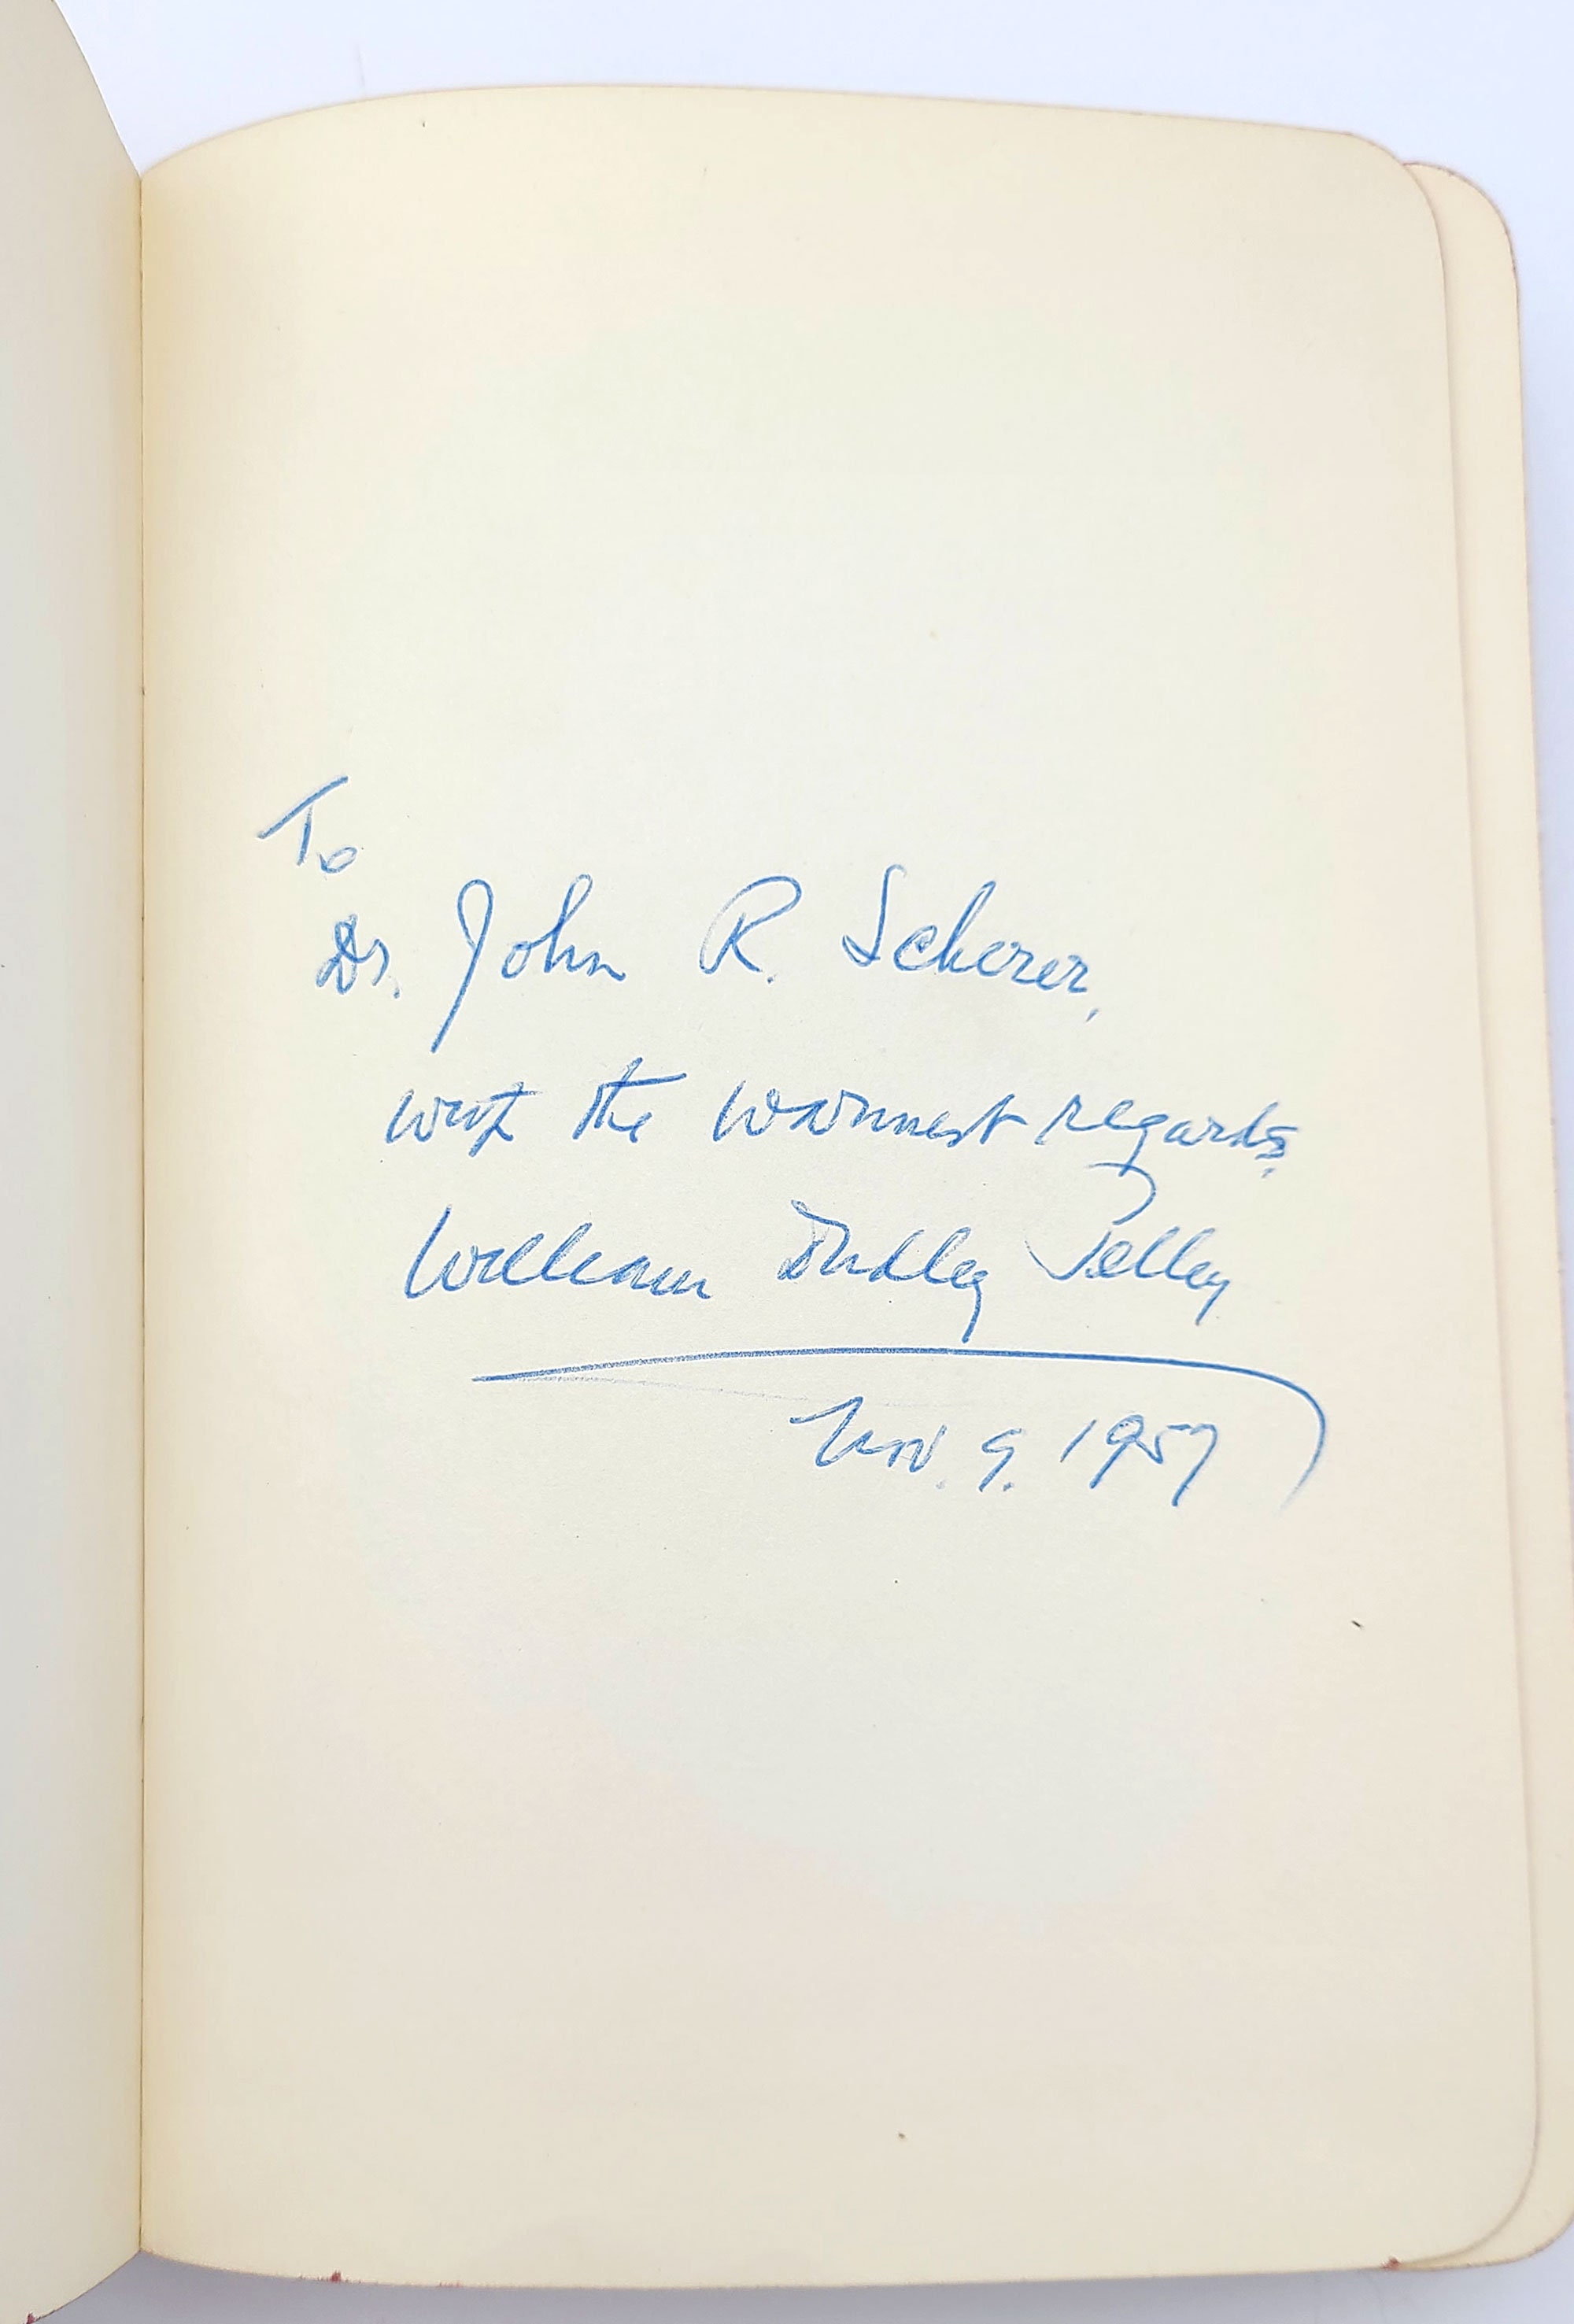 To
Dr. John R. Scherer,
with the warmest regards,
William Dudley Pelley
Nov. 9. 1957